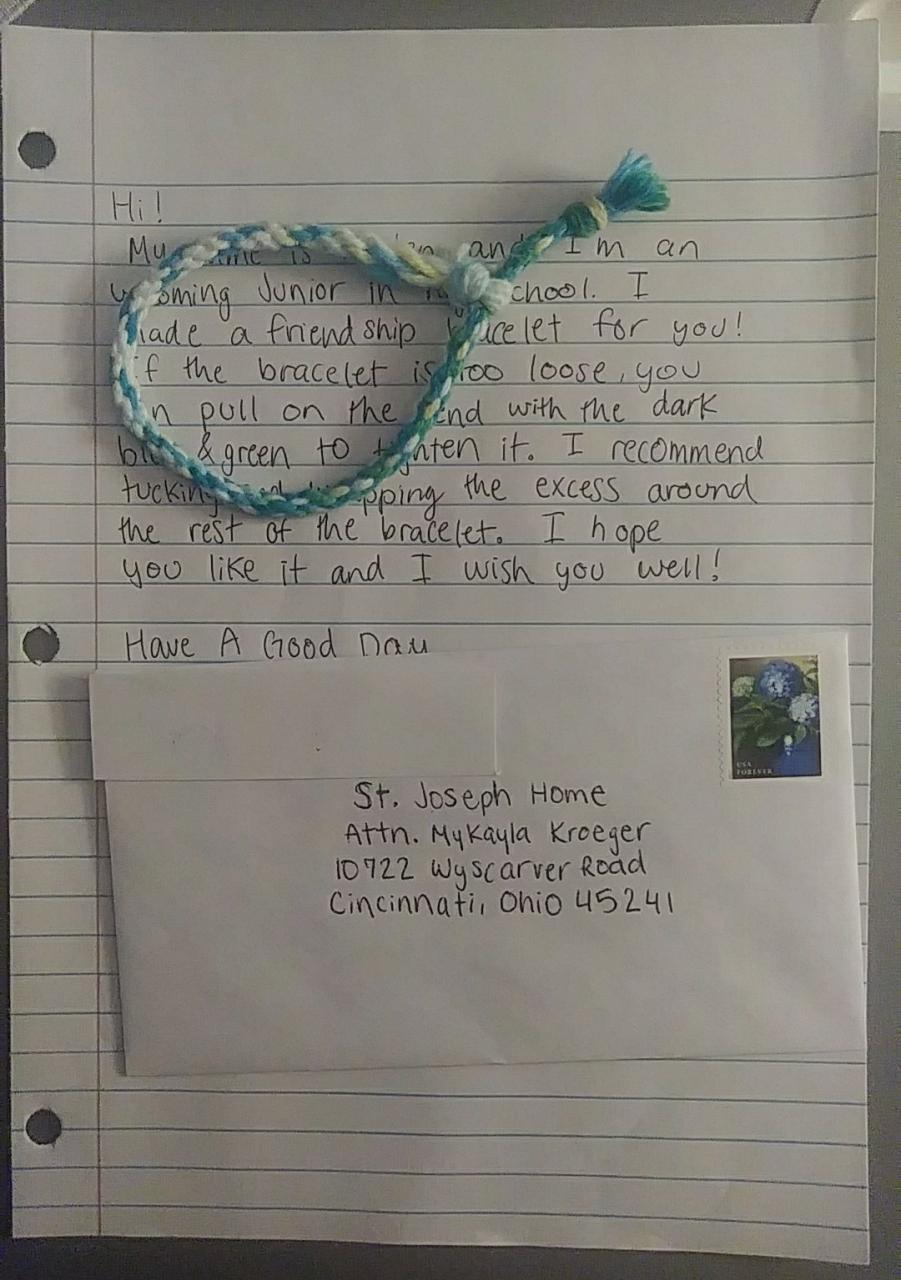 Hi!
My is and I'm an
Junior in I
a friendship for you!
the bracelet is too loose, you
pull on the end with the dark
& green to it. I recommend
tucking the excess around
the rest of the bracelet. I hope
you like it and I wish you well!
Have A Good Day
USA
FOREVER
St. Joseph Home
Attn. Mykayla Kroeger
10722 Wyscarver Road
Cincinnati, Ohio 45241